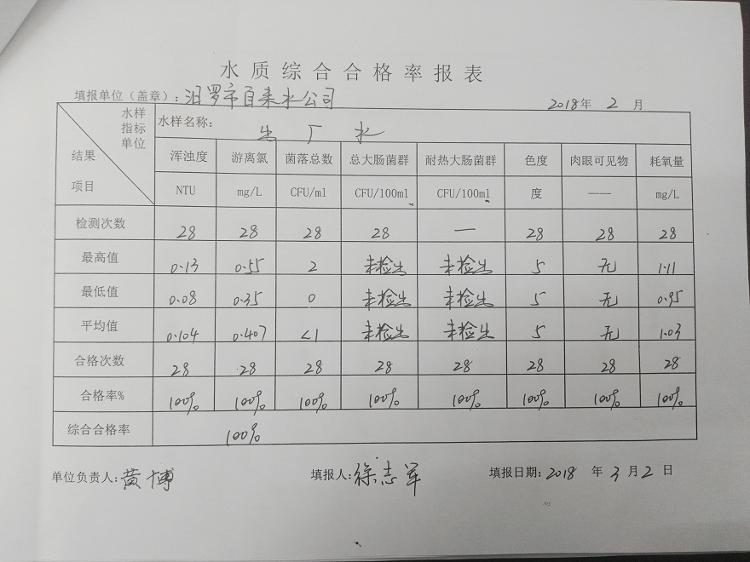 水质综合合格率报表
填报单位（盖章）：汨罗市自来水公司 2018年 2 月
水样 指标 单位 结果 项目 水样名称： 出厂水
浑浊度 游离氯 菌落总数 总大肠菌群 耐热大肠菌群 色度 肉眼可见物 耗氧量
NTU mg/L CFU/ml CFU/100ml CFU/100ml 度 —— mg/L
检测次数 28 28 28 28 — 28 28 28
最高值 0.13 0.55 2 未检出 未检出 5 无 1.11
最低值 0.08 0.35 0 未检出 未检出 5 无 0.95
平均值 0.104 0.407 <1 未检出 未检出 5 无 1.03
合格次数 28 28 28 28 28 28 28 28
合格率% 100% 100% 100% 100% 100% 100% 100% 100%
综合合格率 100%
单位负责人：黄博 填报人：徐志军 填报日期：2018 年 3 月 2 日